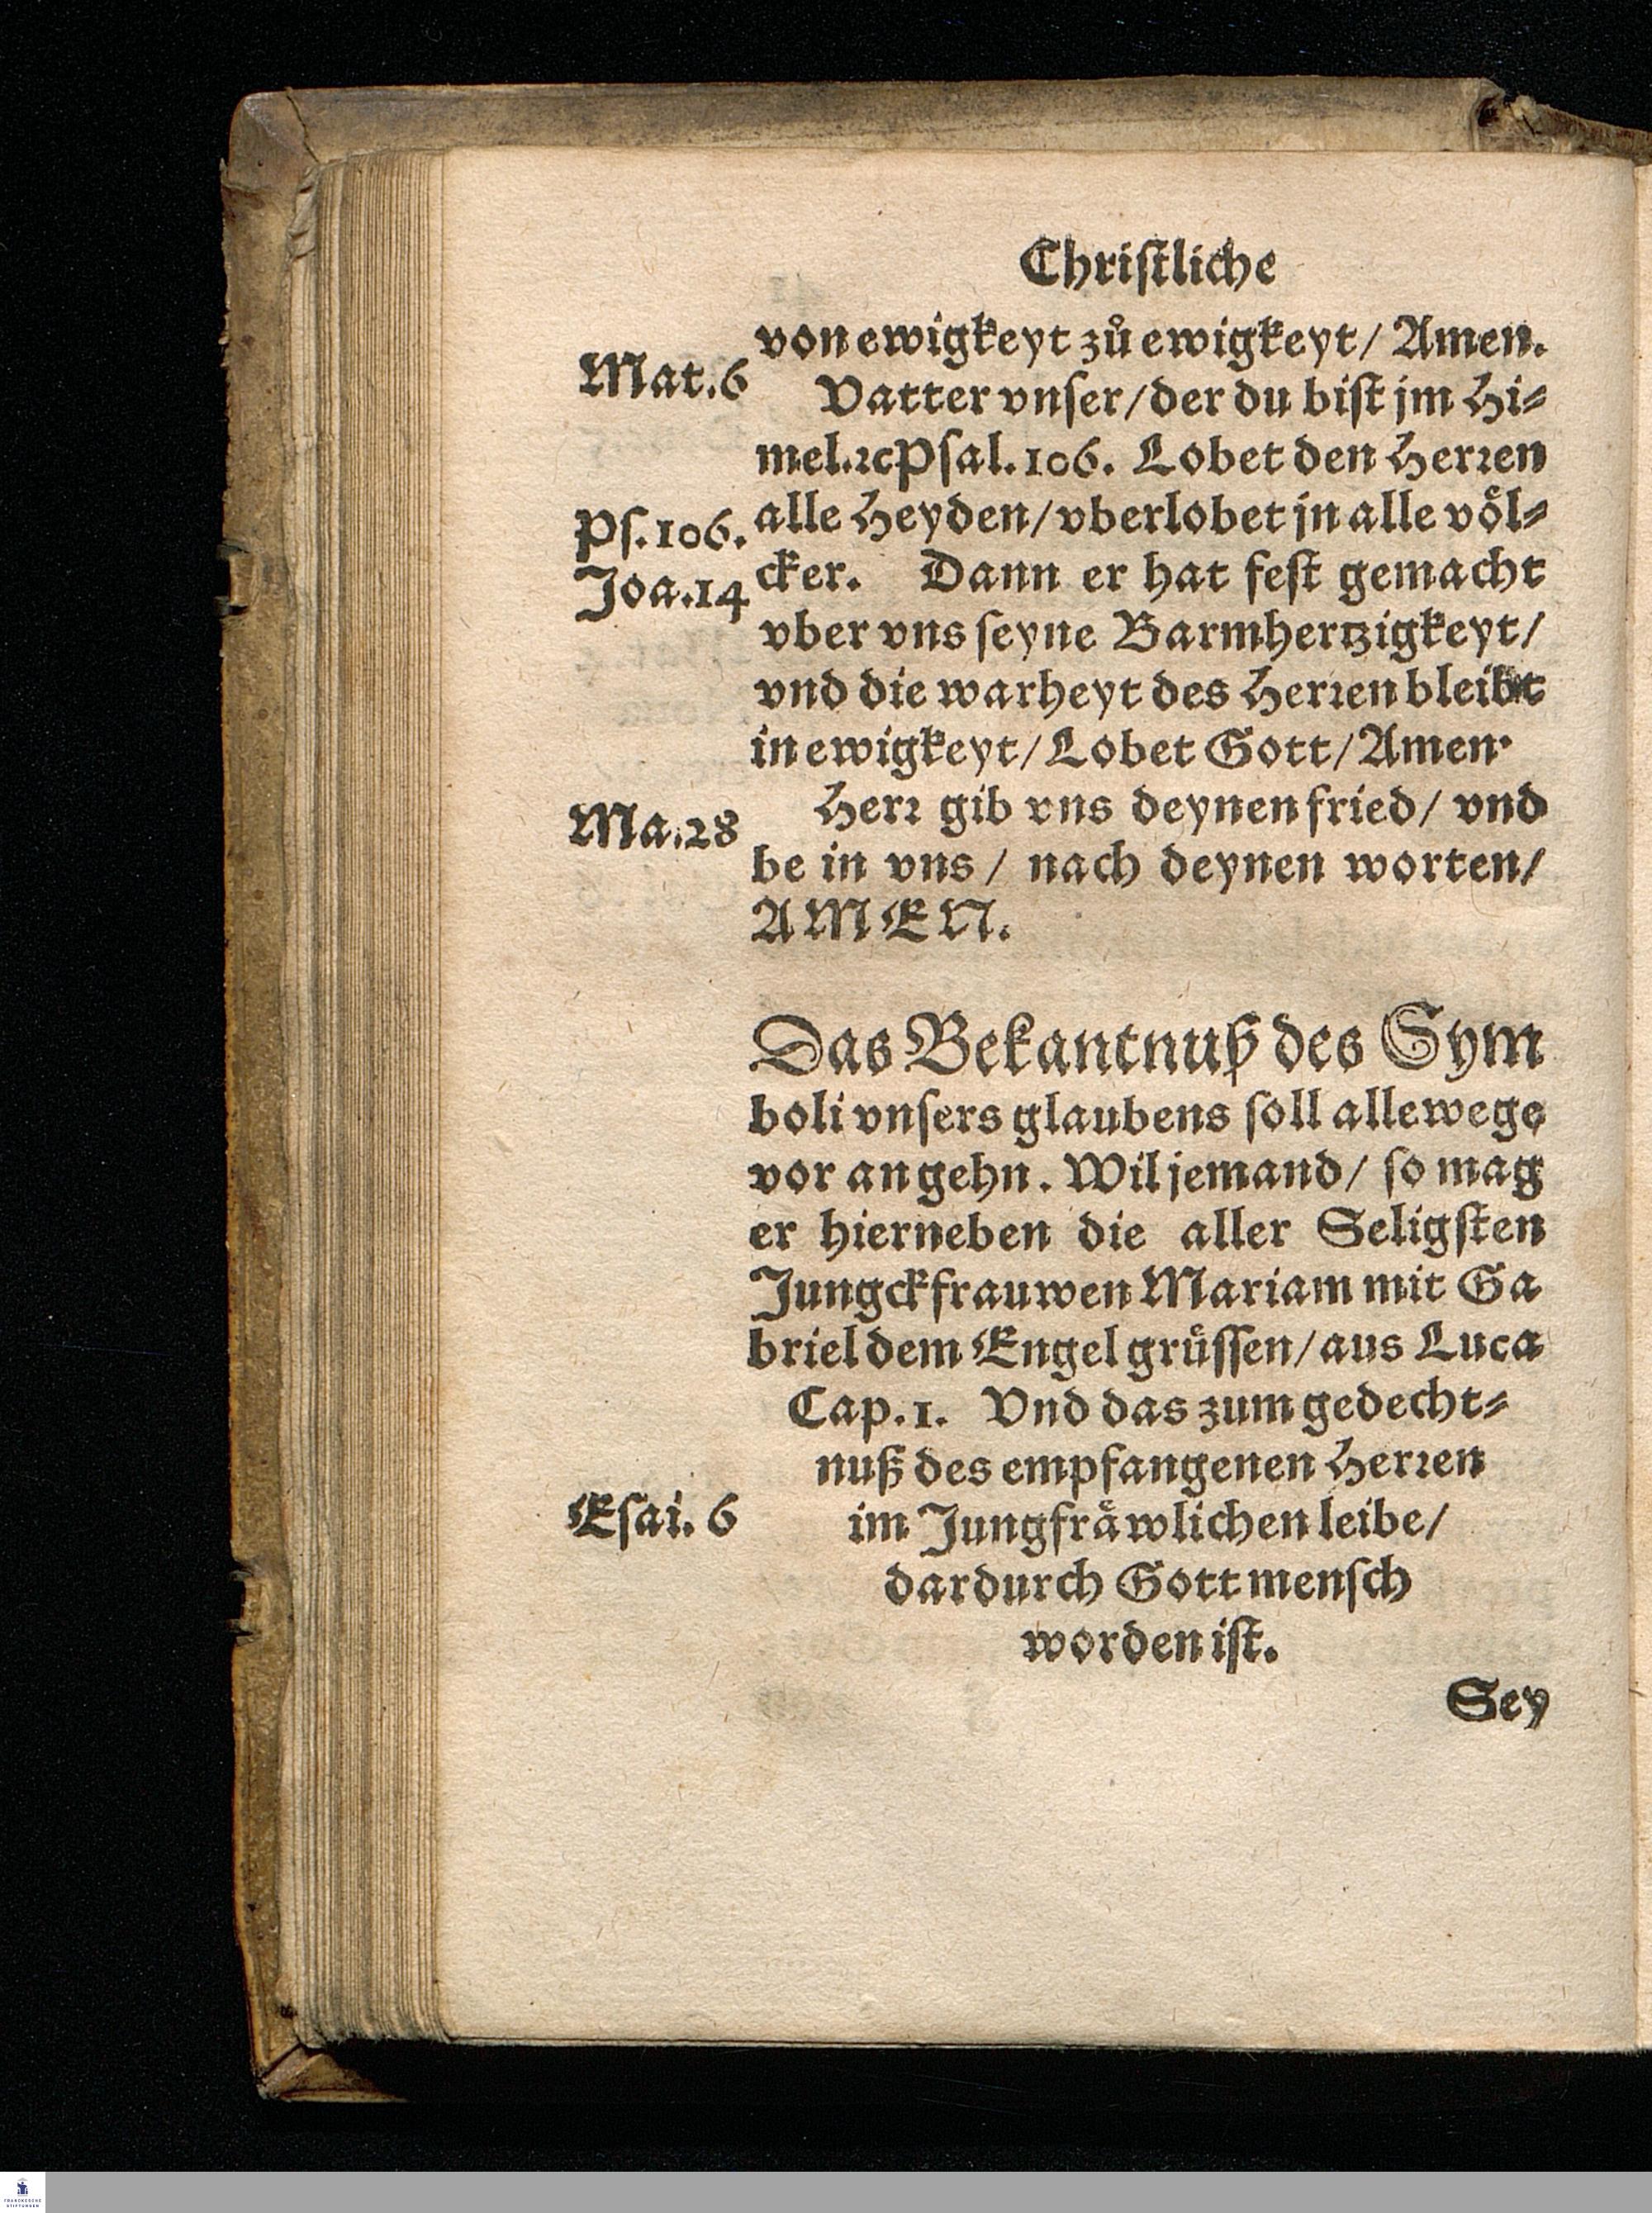 Chriſtliche
von ewigkeyt zuͦ ewigkeyt / Amen.
Mat. 6
Vatter vnſer / der du biſt jm Hi⸗
mel. ꝛc Pſal. 106. Lobet den Herꝛen
Pſ. 106.
alle Heyden / vberlobet jn alle voͤl⸗
Joa. 14
cker. Dann er hat feſt gemacht
vber vns ſeyne Barmhertzigkeyt /
vnd die warheyt des Herꝛen bleibt
in ewigkeyt / Lobet Gott / Amen.
Ma. 28
Herꝛ gib vns deynen fried / vnd
be in vns / nach deynen worten /
AMEN.
Das Bekantnuß des Sym
boli vnſers glaubens ſoll allewege
vor an gehn. Wil jemand / ſo mag
er hierneben die aller Seligſten
Jungckfrauwen Mariam mit Ga
briel dem Engel gruͤſſen / aus Luca
Cap. 1. Vnd das zum gedecht⸗
nuß des empfangenen Herꝛen
Eſai. 6
im Jungfraͤwlichen leibe /
dardurch Gott menſch
worden iſt.
Sey
FRANCKESCHE
STIFTUNGEN